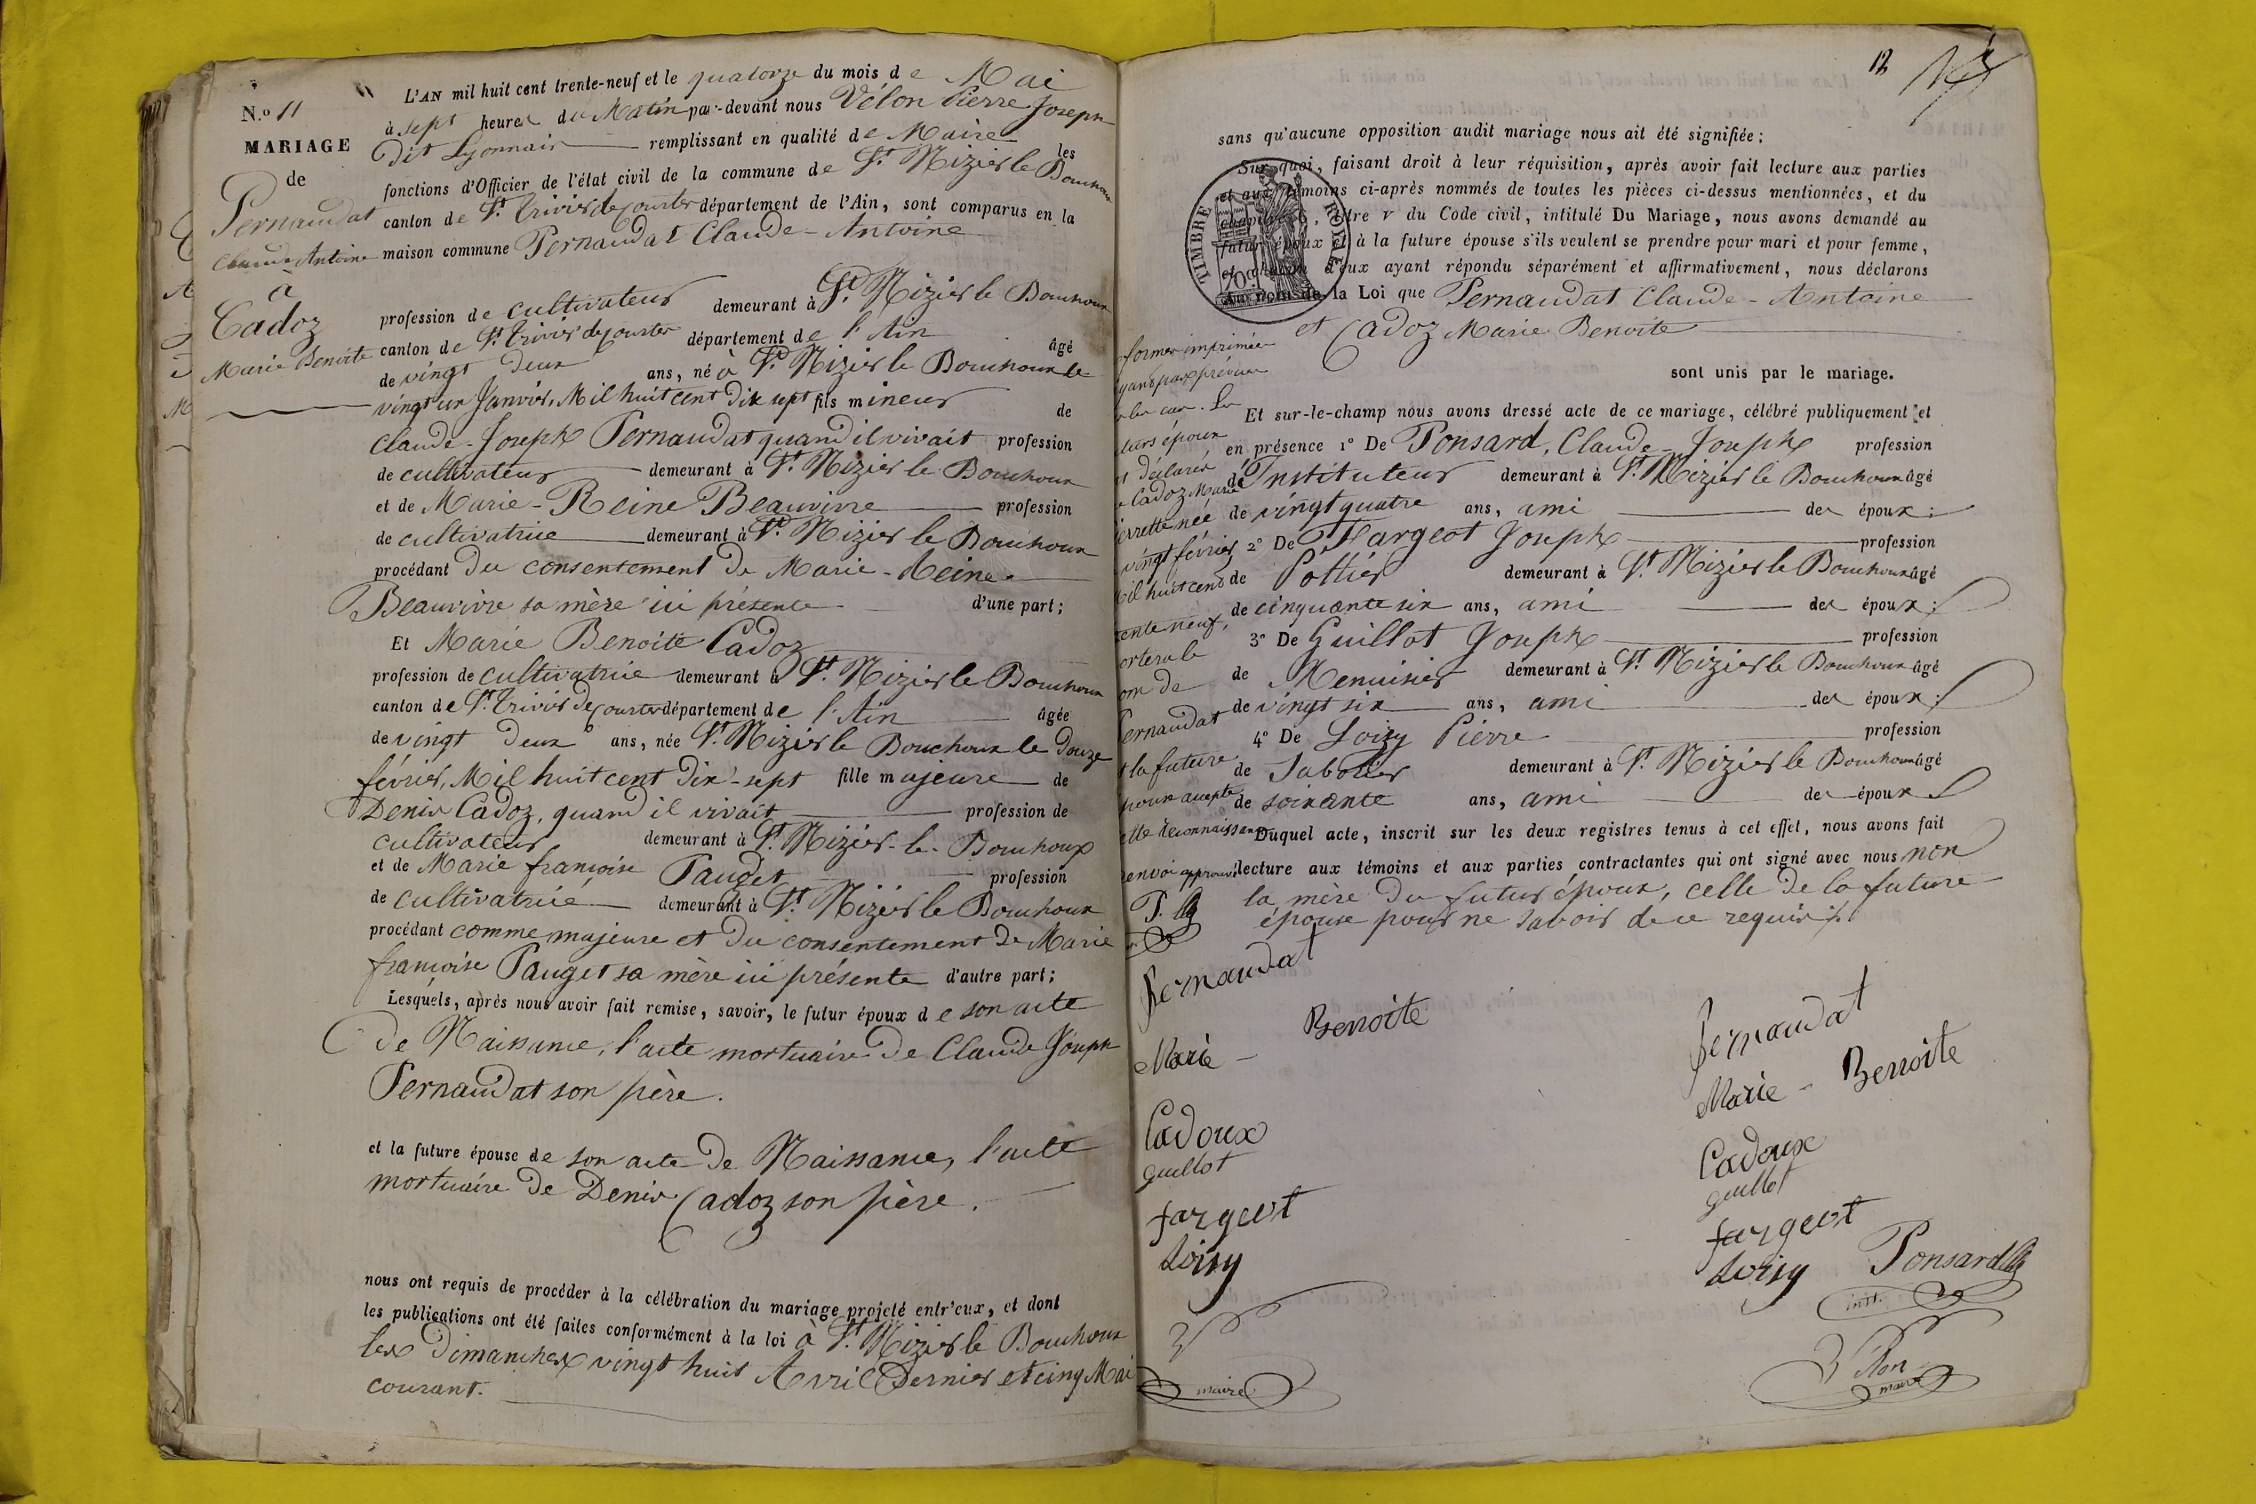 N.o 11
MARIAGE
de
Pernaudat
Claude Antoine
à
Cadoz
Marie Benoite
L'AN mil huit cent trente-neuf et le quatorze du mois de Mai
à sept heures du Matin par-devant nous Vélon Pierre Joseph
dit Lyonnais remplissant en qualité de Maire les
fonctions d'Officier de l'état civil de la commune de St. Nizier le Bouchoux
canton de St. Trivier de Courtes département de l'Ain, sont comparus en la
maison commune Pernaudat Claude-Antoine
profession de cultivateur demeurant à St. Nizier le Bouchoux
canton de St. Trivier de Courtes département de l'Ain âgé
de vingt deux ans, né à St. Nizier le Bouchoux le
vingt un Janvier, Mil huit cent dix sept fils mineur de
Claude-Joseph Pernaudat quand il vivait profession
de cultivateur demeurant à St. Nizier le Bouchoux
et de Marie-Reine Beauvivre profession
de cultivatrice demeurant à St. Nizier le Bouchoux
procédant du consentement de Marie-Reine
Beauvivre sa mère ici présente d'une part;
Et Marie Benoite Cadoz
profession de cultivatrice demeurant à St. Nizier le Bouchoux
canton de St. Trivier de Courtes département de l'Ain âgée
de vingt deux ans, née St. Nizier le Bouchoux le douze
février, Mil huit cent dix-sept fille majeure de
Denis Cadoz, quand il vivait profession de
cultivateur demeurant à St. Nizier-le-Bouchoux
et de Marie françoise Pauget profession
de cultivatrice demeurant à St. Nizier le Bouchoux
procédant comme majeure et du consentement de Marie
françoise Pauget sa mère ici présente d'autre part;
Lesquels, après nous avoir fait remise, savoir, le futur époux de son acte
de Naissance, l'acte mortuaire de Claude Joseph
Pernaudat son père.
et la future épouse de son acte de Naissance, l'acte
mortuaire de Denis Cadoz son père.
nous ont requis de procéder à la célébration du mariage projeté entr'eux, et dont
les publications ont été faites conformément à la loi à St. Nizier le Bouchoux
les dimanches vingt huit Avril dernier et cinq Mai
courant.
12
sans qu'aucune opposition audit mariage nous ait été signifiée;
Sur quoi, faisant droit à leur réquisition, après avoir fait lecture aux parties
et aux témoins ci-après nommés de toutes les pièces ci-dessus mentionnées, et du
chapitre 6, titre v du Code civil, intitulé Du Mariage, nous avons demandé au
futur époux et à la future épouse s'ils veulent se prendre pour mari et pour femme,
et chacun d'eux ayant répondu séparément et affirmativement, nous déclarons
au nom de la Loi que Pernaudat Claude-Antoine
et Cadoz Marie Benoite
sont unis par le mariage.
TIMBRE ROYAL
Et sur-le-champ nous avons dressé acte de ce mariage, célébré publiquement et
en présence 1° De Ponsard, Claude-Joseph profession
d'Instituteur demeurant à St. Nizier le Bouchoux âgé
de vingt quatre ans, ami des époux;
2° De Fargeot Joseph profession
de Pottier demeurant à St. Nizier le Bouchoux âgé
de cinquante six ans, ami des époux;
3° De Guillot Joseph profession
de Menuisier demeurant à St. Nizier le Bouchoux âgé
de vingt six ans, ami des époux;
4° De Loizy Pierre profession
de Sabotier demeurant à St. Nizier le Bouchoux âgé
de soixante ans, ami des époux
Duquel acte, inscrit sur les deux registres tenus à cet effet, nous avons fait
lecture aux témoins et aux parties contractantes qui ont signé avec nous non
la mère du futur époux, celle de la future
épouse pour ne savoir de ce requis
formes imprimées
yant pas prévu
le cas. Les
turs époux
t déclaré
Cadoz Marie
errette née
vingt février
il huit cent
ente neuf,
ortera le
om de
Pernaudat
la future
poux accepte
ette reconnaissance
renvoi approuvé
P.
Pernaudat
Marie-Benoite
Cadoux
guillot
fargeot
Loisy
maire
Pernaudat
Marie-Benoite
Cadoux
guillot
fargeot
Loisy
Ponsard
inst.
Vélon
maire